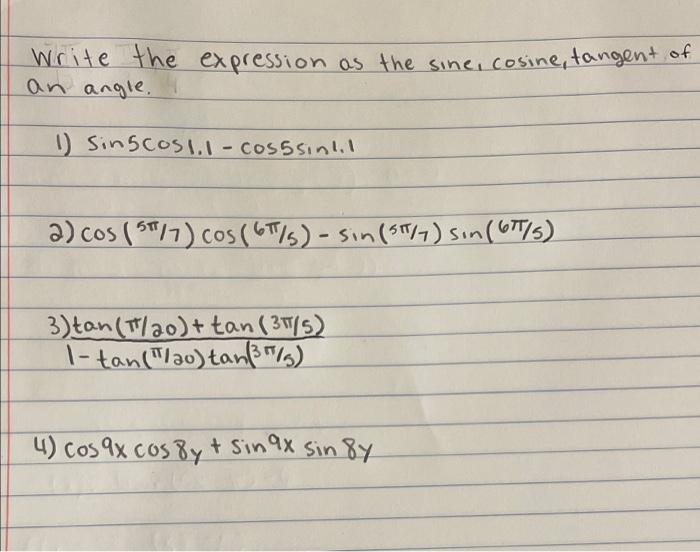 Write the expression as the sine, cosine, tangent of
an angle.
1) sin5cos1.1 - cos5sin1.1
2) cos(5π/7) cos(6π/5) - sin(5π/7) sin(6π/5)
3) tan(π/20) + tan(3π/5)
1 - tan(π/20) tan(3π/5)
4) cos9x cos8y + sin9x sin8y